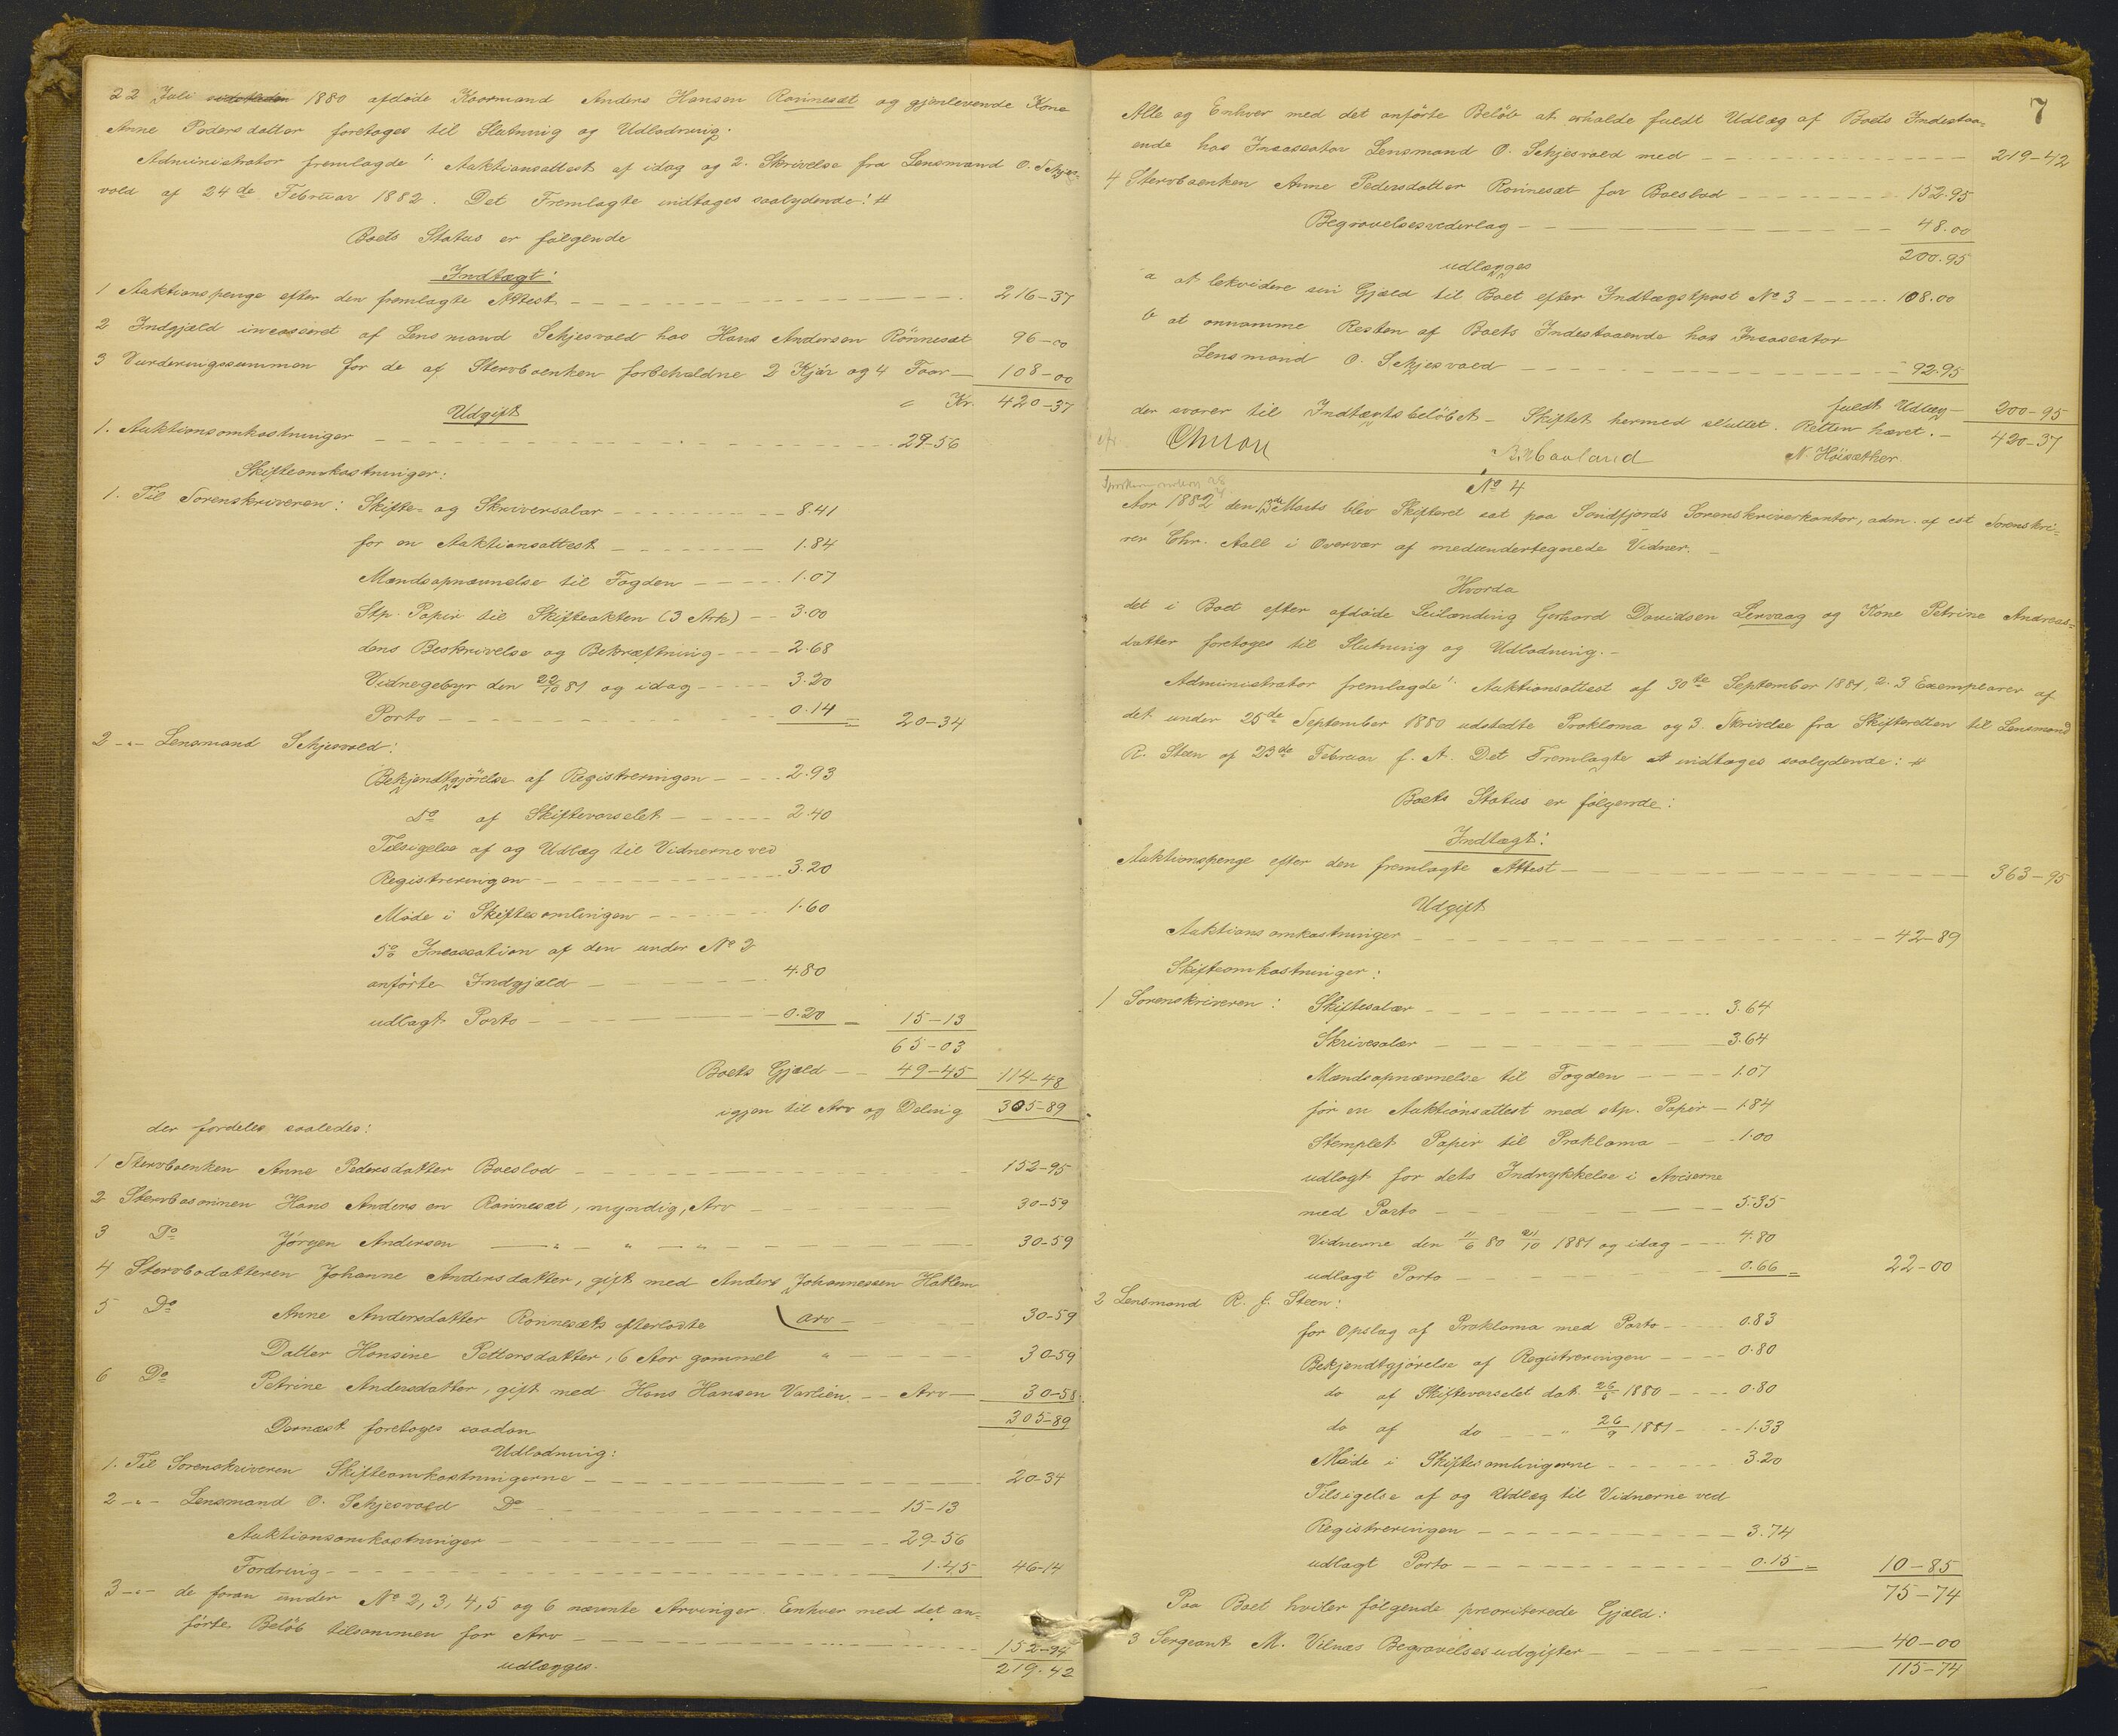 22 Juli sidstleden 1880 afdöde Kaarmand Anders Hansen Rönnesæt og gjenlevende Kone
Anne Pedersdatter foretoges til Slutning og Udlodning.
Administrator fremlagde 1. Auktionsattest af idag og 2. Skrivelse fra Lensmand O. Schjes-
vold af 24de Februar 1882. Det Fremlagte indtages saalydende: #
Boets Status er følgende
Indtægt:
1 Auktionspenge efter den fremlagte Attest 216-37
2 Indgjæld incasseret af Lensmand Schjesvold hos Hans Andersen Rönnesæt 96-00
3 Vurderingssummen for de af Stervboenken forbeholdne 2 Kjør og 4 Faar 108-00
Kr. 420-37
Udgift
1. Auktionsomkostninger 29-56
Skifteomkostninger:
1. Til Sorenskriveren: Skifte- og Skriversalær 8.41
for en Auktionsattest 1.84
Mandsopnævnelse til Fogden 1.07
Stp. Papir til Skifteakten (3 Ark) 3.00
dens Beskrivelse og Bekræftning 2.68
Vidnegebyr den 22/10 81 og idag 3.20
Porto 0.14 = 20-34
2 -"- Lensmand Schjesvold:
Bekjendtgjörelse af Registreringen 2.93
Do af Skiftevarselet 2.40
Tilsigelse af og Udlæg til Vidnerne ved
Registreringen 3.20
Möde i Skiftesamlingen 1.60
5% Incassation af den under No 2
anförte Indgjæld 4.80
udlagt Porto 0.20 = 15-13
65-03
Boets Gjæld 49-45 114-48
igjen til Arv og Deling 305-89
der fordeles saaledes:
1 Stervboenken Anne Pedersdatter Boeslod 152-95
2 Stervbosönnen Hans Andersen Rönnesæt, myndig, Arv 30-59
3 Do Jørgen Andersen -"- " -"- 30-59
4 Stervbodatteren Johanne Andersdatter, gift med Anders Johannessen Hatlem
Arv 30-59
5 Do Anne Andersdatter Rönnesæts efterladte
Datter Hansine Pettersdatter, 6 Aar gammel " 30-59
6 Do Petrine Andersdatter, gift med Hans Hansen Varlien Arv 30-58
305-89
Dernæst foretoges saadan
Udlodning:
1. Til Sorenskriveren Skifteomkostningerne 20-34
2 -"- Lensmand O. Schjesvold Do 15-13
Auktionsomkostninger 29-56
Fordring 1.45 46-14
3 -"- de foran under No 2, 3, 4, 5 og 6 nævnte Arvinger. Enhver med det an-
förte Belöb tilsammen for Arv 152-94
udlægges. 219.42
7
Alle og Enhver med det anförte Belöb at erholde fuldt Udlæg af Boets Indestaa-
ende hos Incassator Lensmand O. Schjesvold med 219-42
4 Stervboenken Anne Pedersdatter Rönnesæt for Boeslod 152.95
Begravelsesvederlag 48.00
200.95
udlægges
a at lekvidere sin Gjæld til Boet efter Indtægtspost No 3 108.00
b at annamme Resten af Boets Indestaaende hos Incassator
Lensmand O. Schjesvold 92.95
fuldt Udlæg 200-95
der svarer til Indtægtsbelöbet. Skiftet hermed sluttet. Retten hævet. 420-37
N. Höisæther.
No 4
Aar 1882 den 13de Marts blev Skifteret sat paa Söndfjords Sorenskriverkontor, adm. af cst Sorenskri-
ver Chr. Aall i Overvær af medundertegnede Vidner.
Hvorda
det i Boet efter afdöde Leilænding Gerhard Davidsen Lervaag og Kone Petrine Andreas-
datter foretoges til Slutning og Udlodning.
Administrator fremlagde 1. Auktionsattest af 30te September 1881, 2. 3 Exemplarer af
det under 25de September 1880 udstedte Proklama og 3. Skrivelse fra Skifteretten til Lensmand
R. Steen af 23de Februar f. A. Det Fremlagte indtages saalydende: #
Boets Status er følgende:
Indtægt:
Auktionspenge efter den fremlagte Attest 363-95
Udgift
Auktionsomkostninger 42-89
Skifteomkostninger:
1 Sorenskriveren: Skiftesalær 3.64
Skrivesalær 3.64
Mandsopnævnelse til Fogden 1.07
for en Auktionsattest med stp. Papir 1.84
Stemplet Papir til Proklama 1.00
udlagt for dets Indrykkelse i Aviserne
med Porto 5.35
Vidnerne den 11/6 80 21/10 1881 og idag 4.80
udlagt Porto 0.66 = 22-00
2 Lensmand R. J. Steen:
for Opslag af Proklama med Porto 0.83
Bekjendtgjörelse af Registreringen 0.80
do af Skiftevarselet dat. 26/5 1880 0.80
do af do " 26/9 1881 1.33
Möde i Skiftesamlingerne 3.20
Tilsigelse af og Udlæg til Vidnerne ved
Registreringen 3.74
udlagt Porto 0.15 = 10-85
75-74
Paa Boet hviler følgende prioriterede Gjæld:
3 Sergeant M. Vilnæs Begravelsesudgifter 40-00
115-74